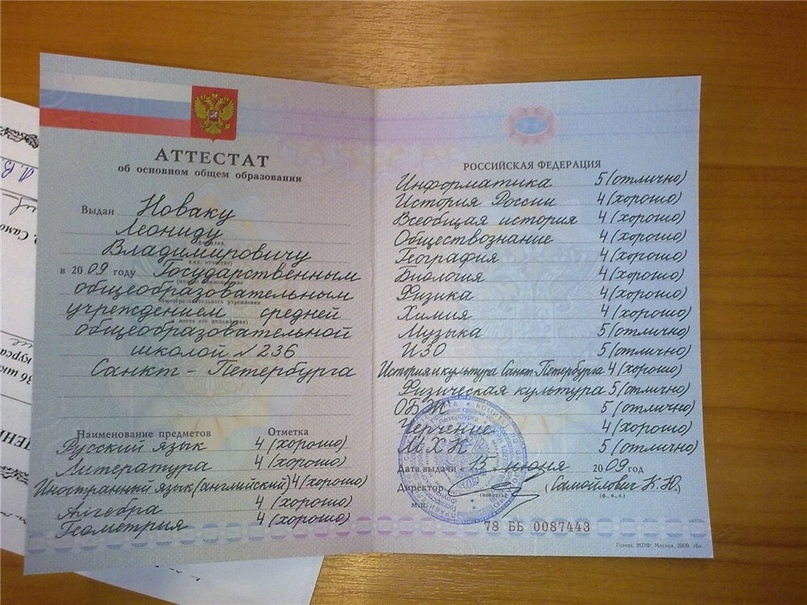 АТТЕСТАТ
об основном общем образовании
Выдан Новаку
Леониду
Владимировичу
в 2009 году Государственным
общеобразовательным
учреждением средней
общеобразовательной
школой № 236
Санкт-Петербурга
Наименование предметов Отметка
Русский язык 4 (хорошо)
Литература 4 (хорошо)
Иностранный язык (английский) 4 (хорошо)
Алгебра 4 (хорошо)
Геометрия 4 (хорошо)
РОССИЙСКАЯ ФЕДЕРАЦИЯ
Информатика 5 (отлично)
История России 4 (хорошо)
Всеобщая история 4 (хорошо)
Обществознание 4 (хорошо)
География 4 (хорошо)
Биология 4 (хорошо)
Физика 4 (хорошо)
Химия 4 (хорошо)
Музыка 5 (отлично)
ИЗО 5 (отлично)
История и культура Санкт-Петербурга 4 (хорошо)
Физическая культура 5 (отлично)
ОБЖ 5 (отлично)
Черчение 4 (хорошо)
МХК 5 (отлично)
Дата выдачи « 15 » июня 2009 год
Директор (Самойлович К.Ю.)
(подпись) (ф., и., о.)
м.п.
78 ББ 0087443